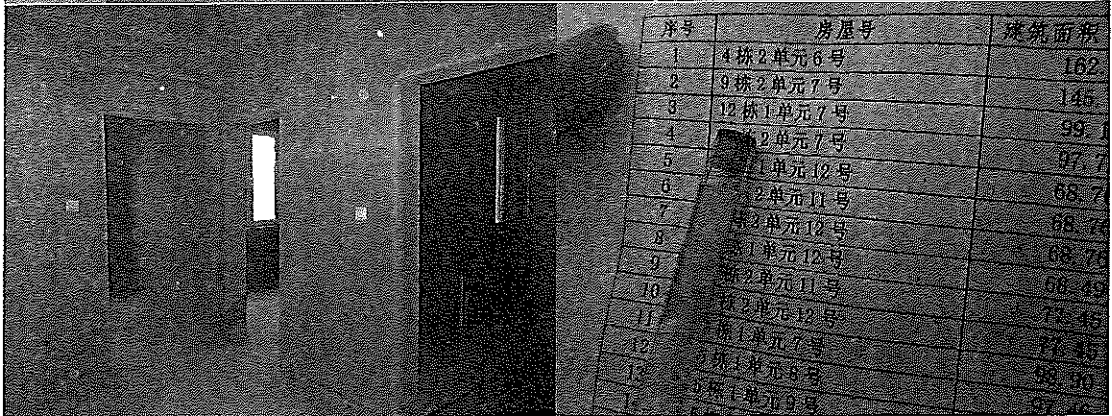 序号 房屋号 建筑面积
1 4栋2单元6号 162
2 9栋2单元7号 145.
3 12栋1单元7号 99.1
4 2单元7号 97.7
5 1单元12号 68.7
6 2单元11号 68.76
7 2单元12号 68.76
8 1单元12号 68.49
9 栋2单元11号 77.45
10 栋2单元12号 77.45
11 栋1单元7号
12 栋1单元8号
13 栋1单元9号